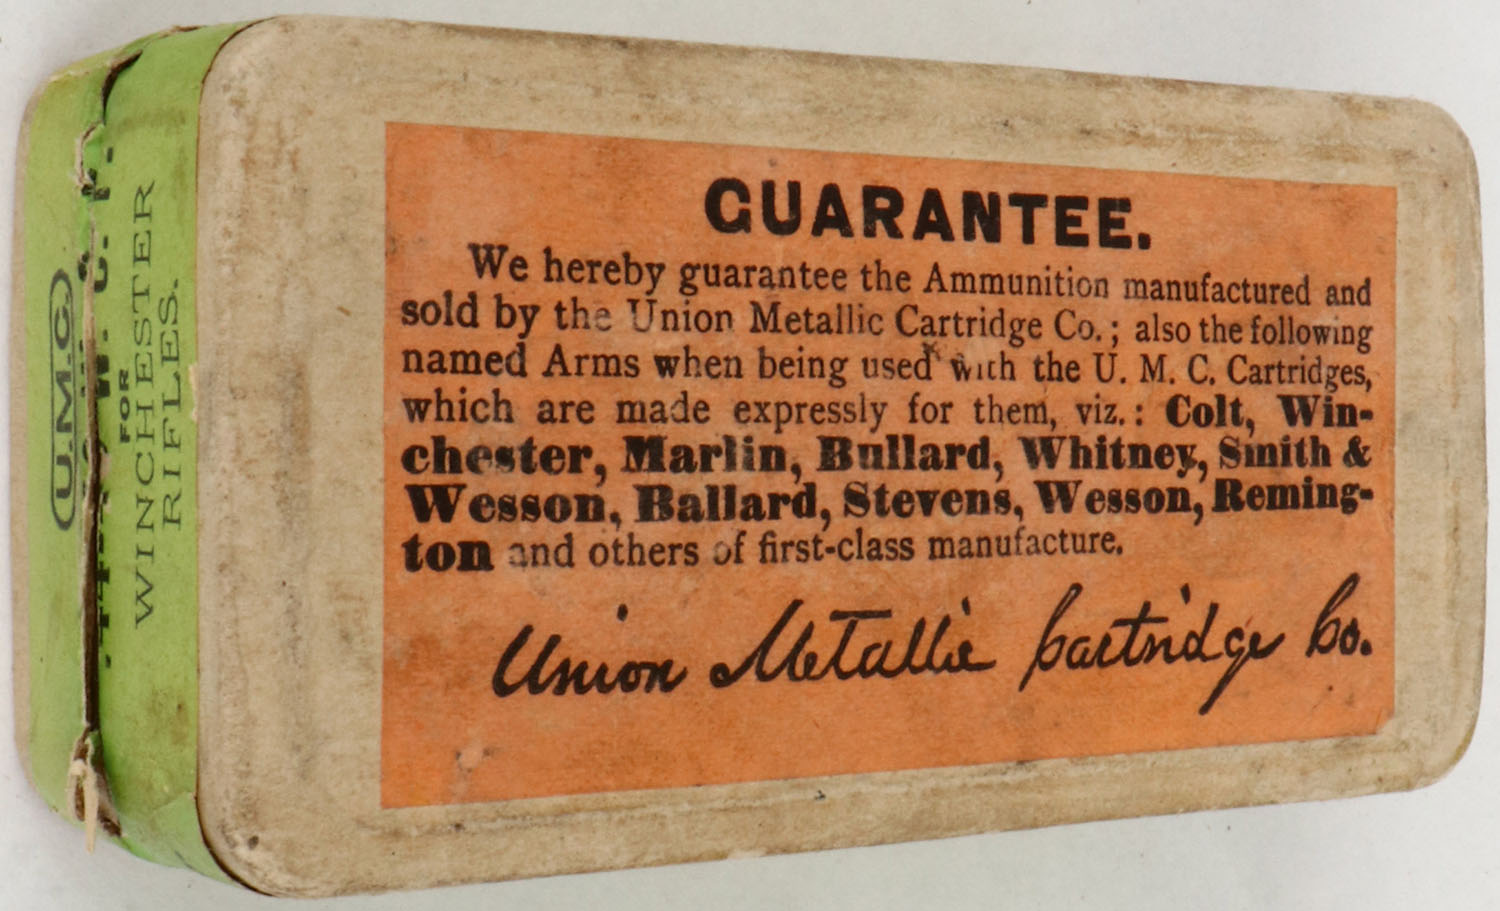 GUARANTEE.
We hereby guarantee the Ammunition manufactured and
sold by the Union Metallic Cartridge Co.; also the following
named Arms when being used with the U. M. C. Cartridges,
which are made expressly for them, viz.: Colt, Win-
chester, Marlin, Bullard, Whitney, Smith &
Wesson, Ballard, Stevens, Wesson, Reming-
ton and others of first-class manufacture.
Union Metallic Cartridge Co.
U.M.C.
W. C. F.
FOR
WINCHESTER
RIFLES.